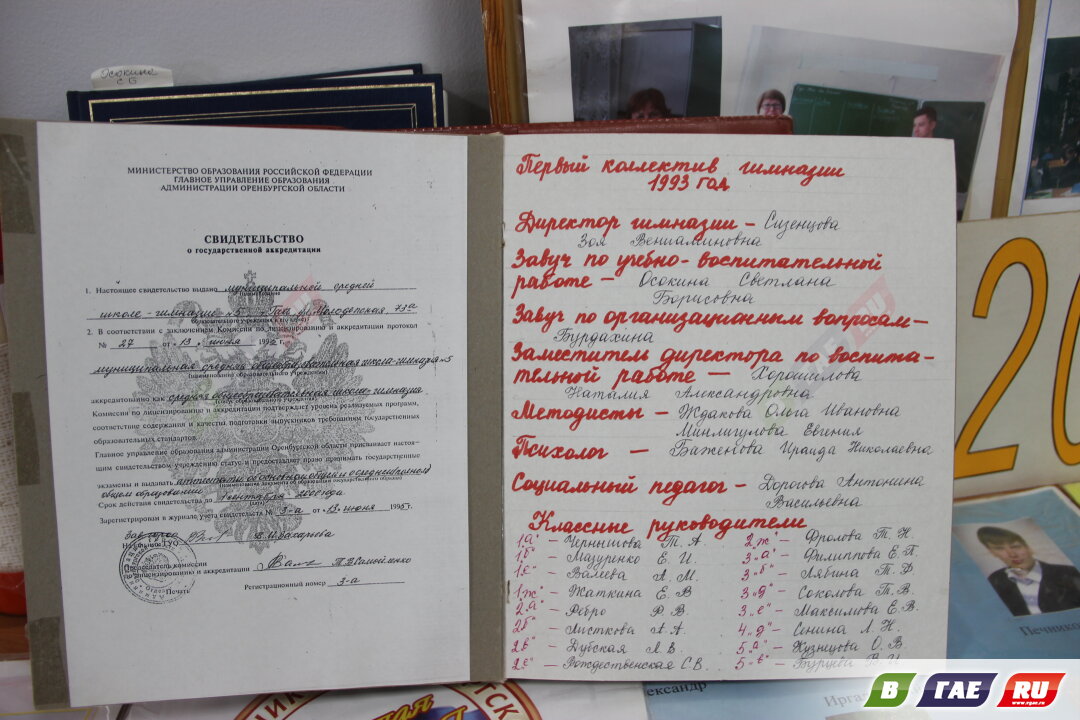 Осокина
С Б
МИНИСТЕРСТВО ОБРАЗОВАНИЯ РОССИЙСКОЙ ФЕДЕРАЦИИ
ГЛАВНОЕ УПРАВЛЕНИЕ ОБРАЗОВАНИЯ
АДМИНИСТРАЦИИ ОРЕНБУРГСКОЙ ОБЛАСТИ
СВИДЕТЕЛЬСТВО
о государственной аккредитации
1. Настоящее свидетельство выдано муниципальной средней
школе-гимназии №5 г. Гая ул. Молодежная,
2. В соответствии с заключением Комиссии по лицензированию и аккредитации протокол
№ 27 от «13» июня
муниципальная средняя общеобразовательная школа-гимназия №5
(наименование образовательного учреждения)
аккредитовано как средняя общеобразовательная школа-гимназия
Комиссии по лицензированию и аккредитации подтверждает уровень реализуемых программ,
соответствие содержания и качества подготовки выпускников требованиям государственных
образовательных стандартов.
Главное управление администрации Оренбургской области присваивает настоя-
щим свидетельством учреждению статус и предоставляет право принимать государственные
экзамены и выдавать аттестаты об основном общем и о среднем (полном)
общем образовании
Срок действия свидетельства до 1 сентября 2000 года
Зарегистрирован в журнале учета свидетельств № 3-а от «13» июня 1995 г.
комиссии
лицензированию и аккредитации
Печать
Регистрационный номер 3-а
Первый коллектив гимназии
1993 год
Директор гимназии – Сизенцова
Зоя Вениаминовна
Завуч по учебно-воспитательной
работе – Осокина Светлана
Борисовна
Завуч по организационным вопросам –
Бурдахина
Заместитель директора по воспита-
тельной работе – Хорошилова
Наталия Александровна
Методисты – Ждакова Ольга Ивановна
Минлигулова Евгения
Психолог – Баженова Ираида Николаевна
Социальный педагог – Дорогова Антонина
Васильевна
Классные руководители
1"а" – Чернышова Т. А.
1"б" – Мазуренко Е. И.
1"е" – Валеева А. М.
1"ж" – Жаткина Е. В
2"а" – Ребро Р. В.
2"б" – Листкова А. А.
2"в" – Дубская Л. В.
2"е" – Рождественская С. В.
2"ж" – Фролова Т. Н.
3"а" – Филиппова Е. П.
3"б" – Лябина Т. Д
3"д" – Соколова Т. В.
3"е" – Максимова Е. В.
4"д" – Сенина Л. Н.
5"а" – Кузнецова О. В.
5"е" – Бурцева В. И
20
Печнико
сандр
Ирга
В ГАЕ RU
www.vgae.ru